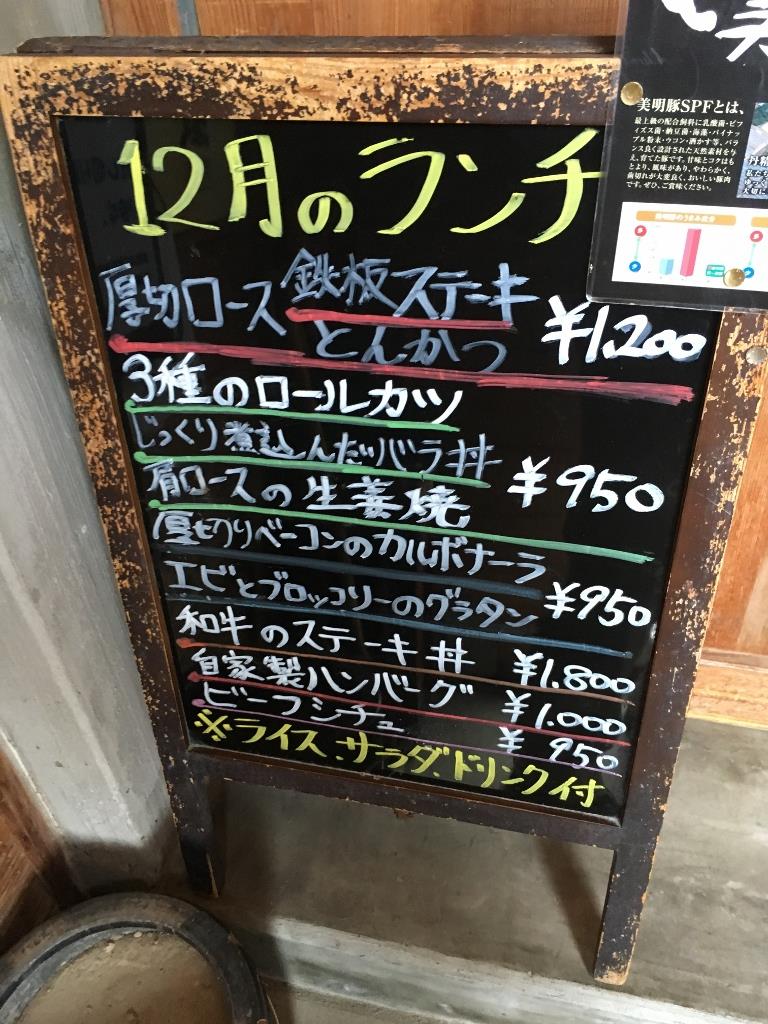 12月のランチ
厚切ロース 鉄板ステーキ
とんかつ ¥1,200
3種のロールカツ
じっくり煮込んだバラ丼
¥950
肩ロースの生姜焼
厚切りベーコンのカルボナーラ
エビとブロッコリーのグラタン ¥950
和牛のステーキ丼 ¥1.800
自家製ハンバーグ ¥1.000
ビーフシチュー ¥950
※ライス、サラダ、ドリンク付
美明豚SPFとは、
最上級の配合飼料に乳酸菌・ビフ
ィズス菌・納豆菌・海藻・パイナッ
プル粉末・ウコン・酒かす等、バラ
ンス良く設計された天然素材を与
え、育てた豚です。甘味とコクはも
とより、風味があり、やわらかく、
歯切れが大変良く、おいしい豚肉
です。ぜひ、ご賞味ください。
美明豚のうまみ成分